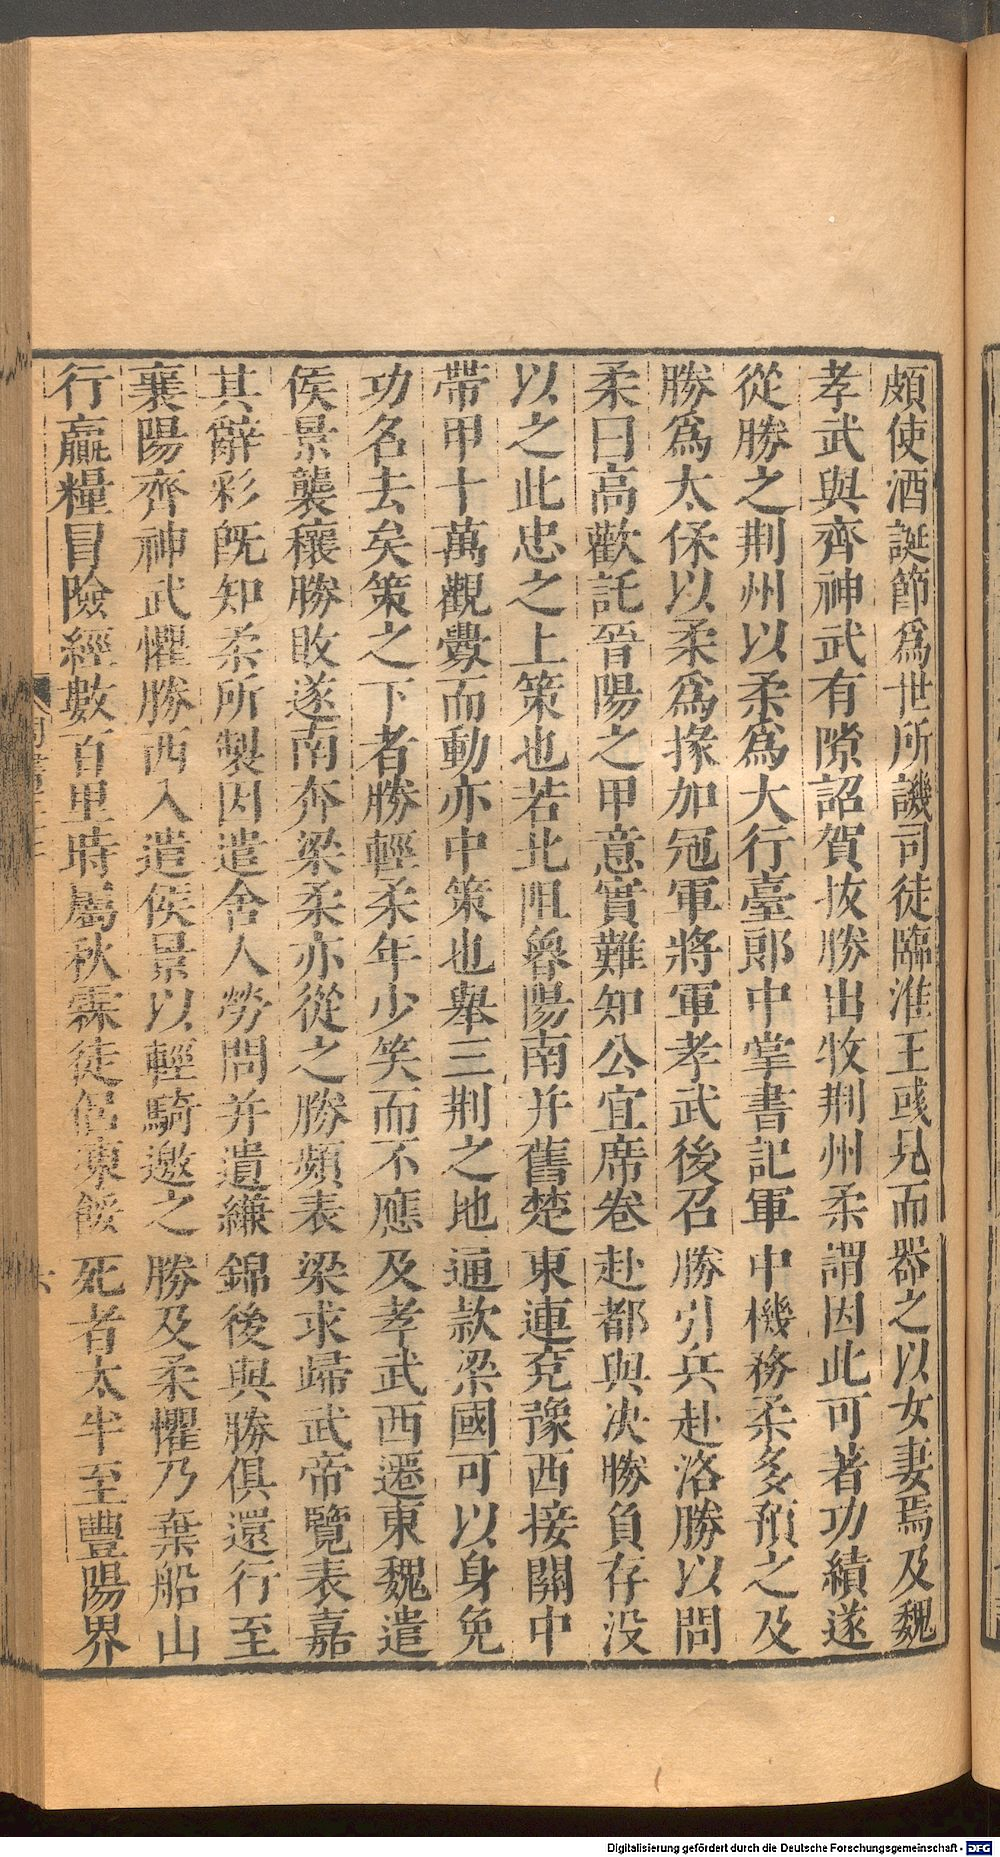 頗使酒誕節爲世所譏司徒臨淮王彧見而器之以女妻焉及魏
孝武與齊神武有隙詔賀拔勝出牧荆州柔謂因此可著功績遂
從勝之荆州以柔爲大行臺郎中掌書記軍中機務柔多預之及
勝爲太保以柔爲掾加冠軍將軍孝武後召勝引兵赴洛勝以問
柔曰高歡託晉陽之甲意實難知公宜席卷赴都與决勝負存没
以之此忠之上策也若北阻魯陽南并舊楚東連兖豫西接關中
帶甲十萬觀釁而動亦中策也舉三荆之地通款梁國可以身免
功名去矣策之下者勝輕柔年少笑而不應及孝武西遷東魏遣
侯景襲穰勝敗遂南奔梁柔亦從之勝頻表梁求歸武帝覽表嘉
其辭彩旣知柔所製因遣舍人勞問并遺縑錦後與勝俱還行至
襄陽齊神武懼勝西入遣侯景以輕騎邀之勝及柔懼乃棄船山
行贏糧冒險經數百里時屬秋霖徒侣凍餒死者太半至豐陽界
六
Digitalisierung gefördert durch die Deutsche Forschungsgemeinschaft - DFG